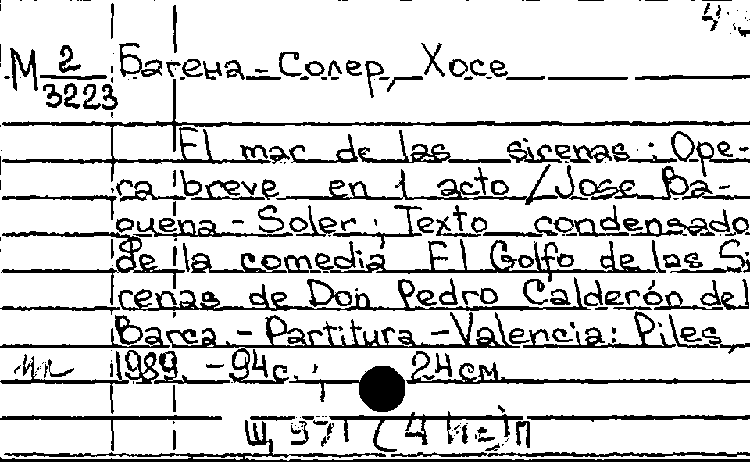 М 2/3223 Багена-Солер, Хосе
El mar de las sirenas : Ope-
ra breve en 1 acto / Jose Ba-
guena-Soler; Texto condensado
de la comedia El Golfo de las Si
renas de Don Pedro Calderón del
Barca. - Partitura. - Valencia: Piles,
1989. - 94 с. ; 24 см.
Щ 971 (4 Ис) П